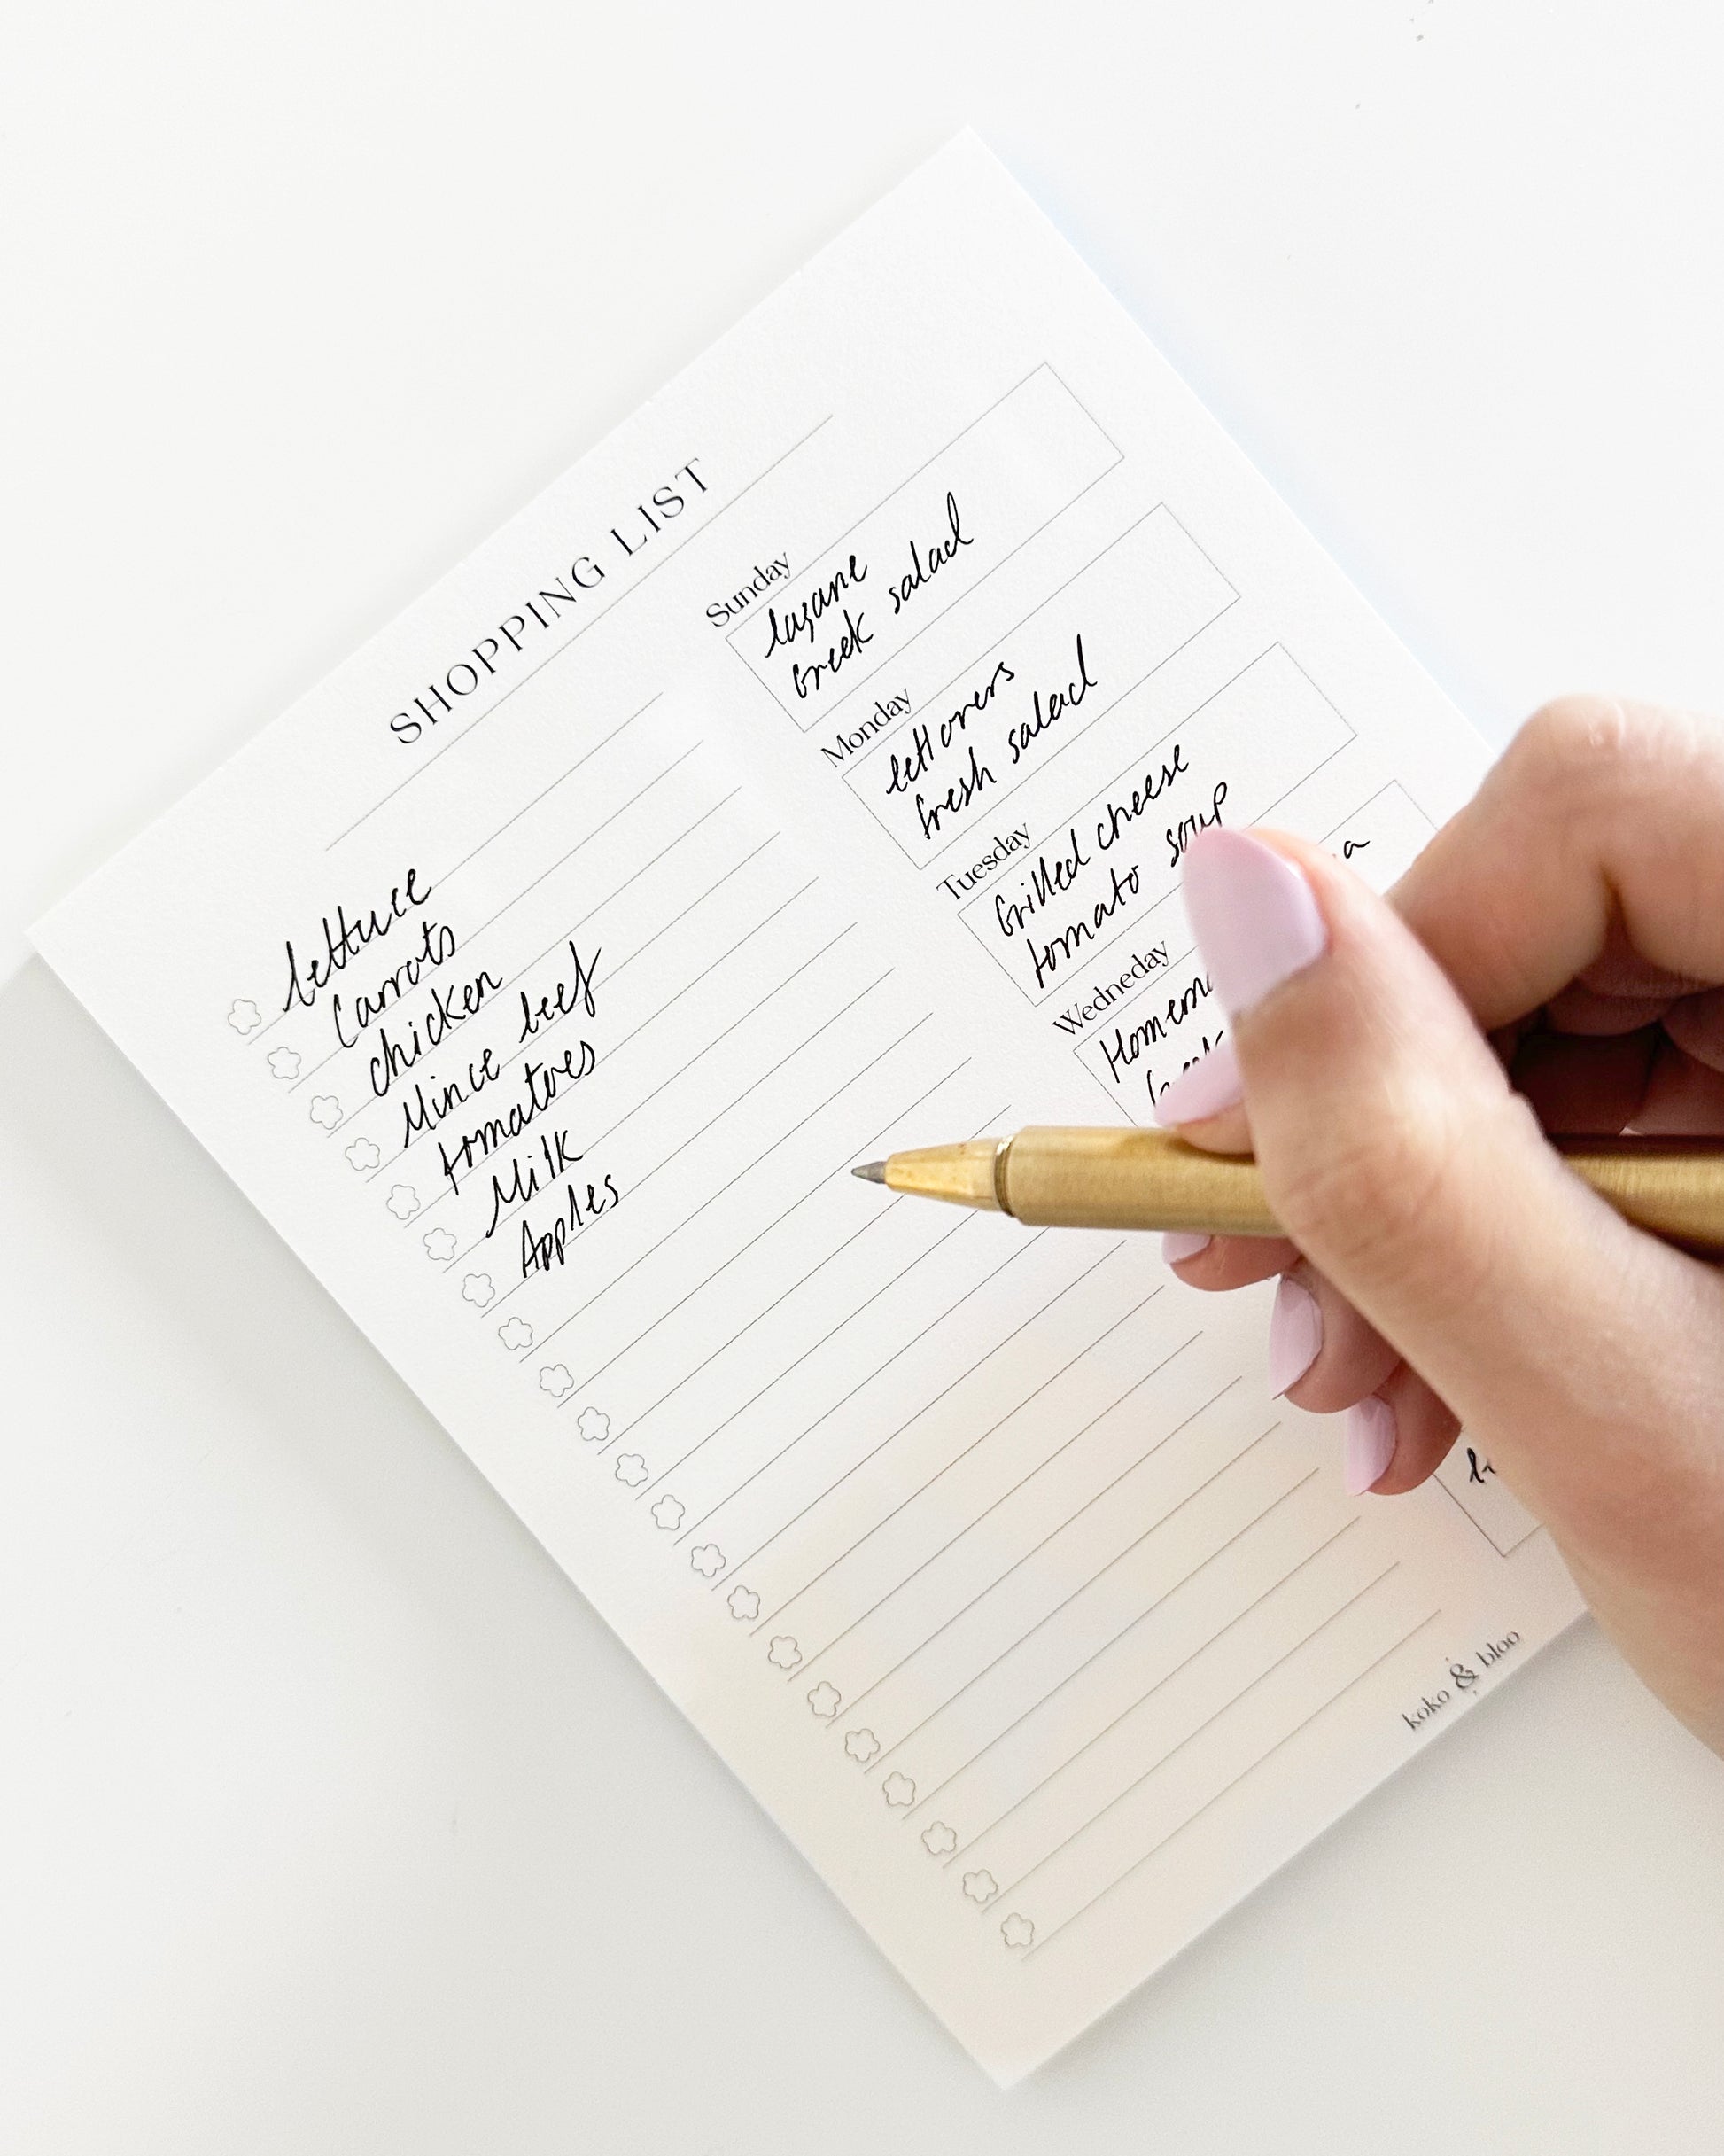 SHOPPING LIST
lettuce
carrots
chicken
Mince beef
tomatoes
Milk
Apples
Sunday
lazane
Greek salad
Monday
leftovers
fresh salad
Tuesday
Grilled cheese
tomato soup
Wedneday
koko & bloo